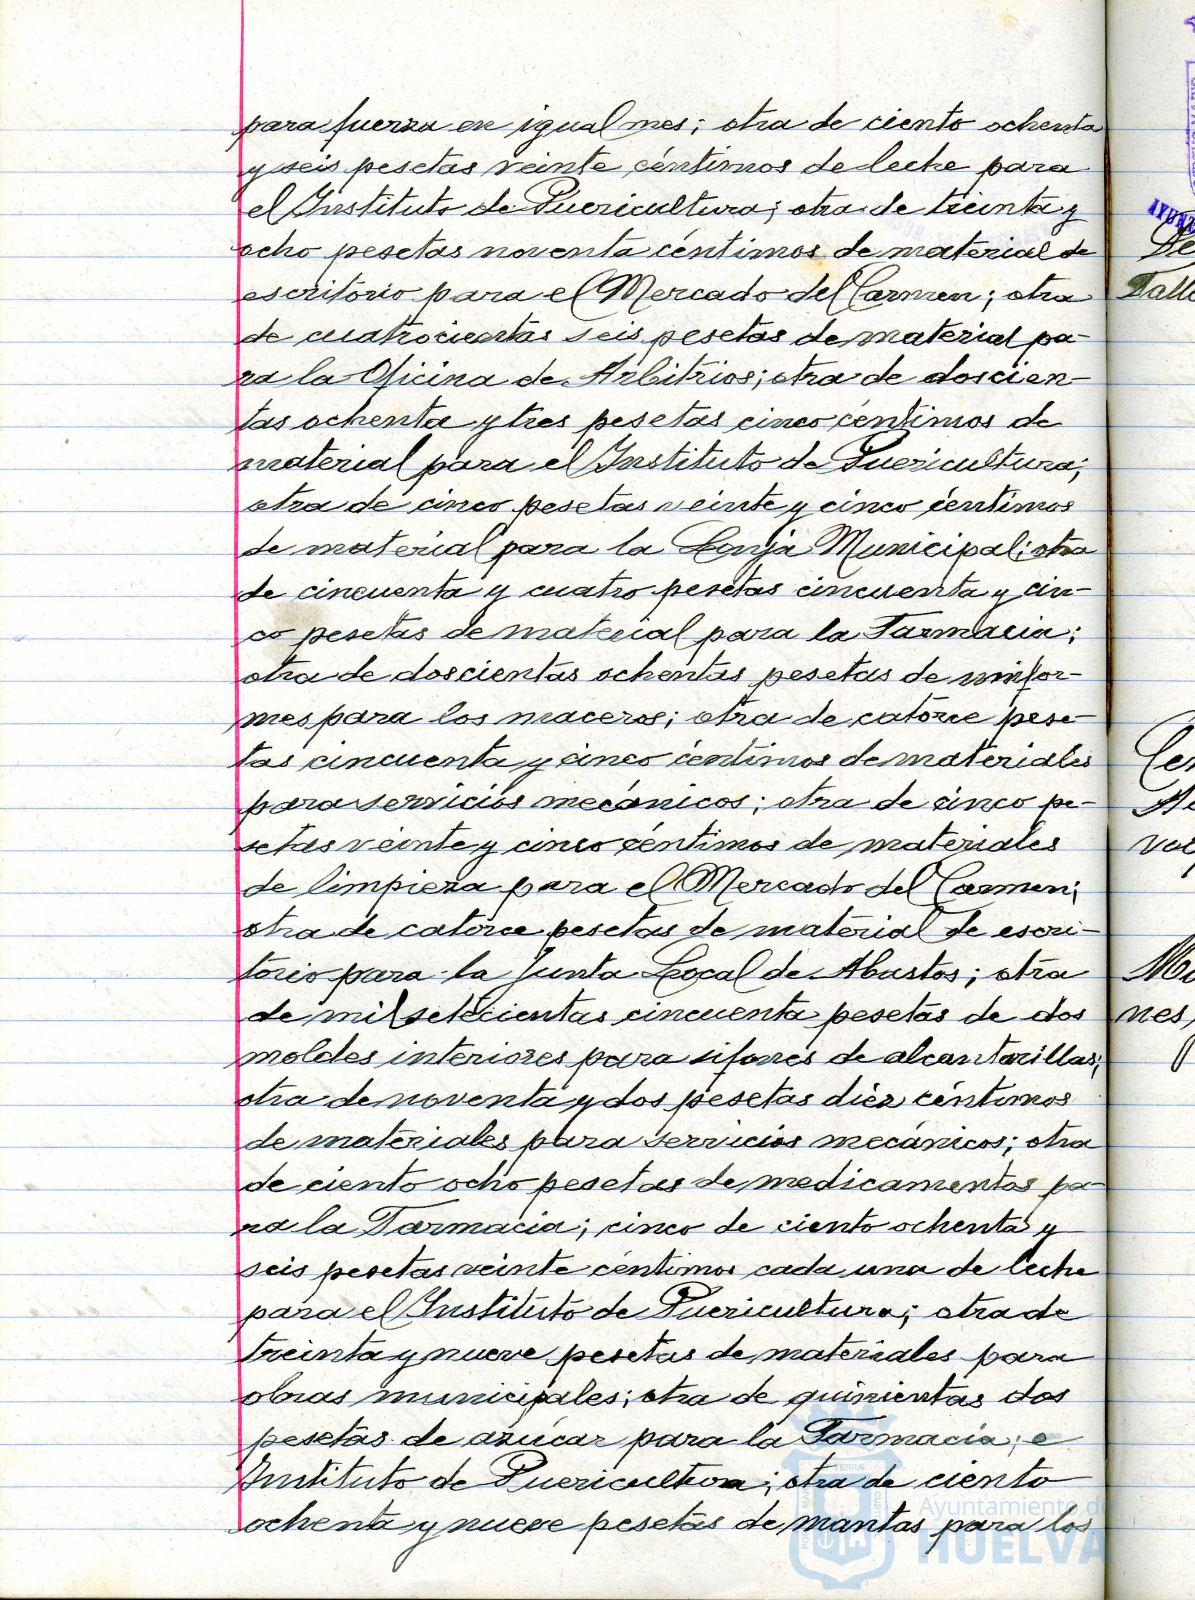 para fuerza en igual mes; otra de ciento ochenta
y seis pesetas veinte céntimos de leche para
el Instituto de Puericultura; otra de treinta y
ocho pesetas noventa céntimos de material de
escritorio para el Mercado del Carmen; otra
de cuatrocientas seis pesetas de material pa-
ra la Oficina de Arbitrios; otra de doscien-
tas ochenta y tres pesetas cinco céntimos de
material para el Instituto de Puericultura;
otra de cinco pesetas veinte y cinco céntimos
de material para la Lonja Municipal; otra
de cincuenta y cuatro pesetas cincuenta y cin-
co pesetas de material para la Farmacia;
otra de doscientas ochentas pesetas de unifor-
mes para los maceros; otra de catorce pese-
tas cincuenta y cinco céntimos de materiales
para servicios mecánicos; otra de cinco pe-
setas veinte y cinco céntimos de materiales
de limpieza para el Mercado del Carmen;
otra de catorce pesetas de material de escri-
torio para la Junta Local de Abastos; otra
de mil setecientas cincuenta pesetas de dos
moldes interiores para sifones de alcantarillas;
otra de noventa y dos pesetas diez céntimos
de materiales para servicios mecánicos; otra
de ciento ocho pesetas de medicamentos pa-
ra la Farmacia; cinco de ciento ochenta y
seis pesetas veinte céntimos cada una de leche
para el Instituto de Puericultura; otra de
treinta y nueve pesetas de materiales para
obras municipales; otra de quinientas dos
pesetas de azúcar para la Farmacia; e
Instituto de Puericultura; otra de ciento
ochenta y nueve pesetas de mantas para los
Ayuntamiento de
HUELVA